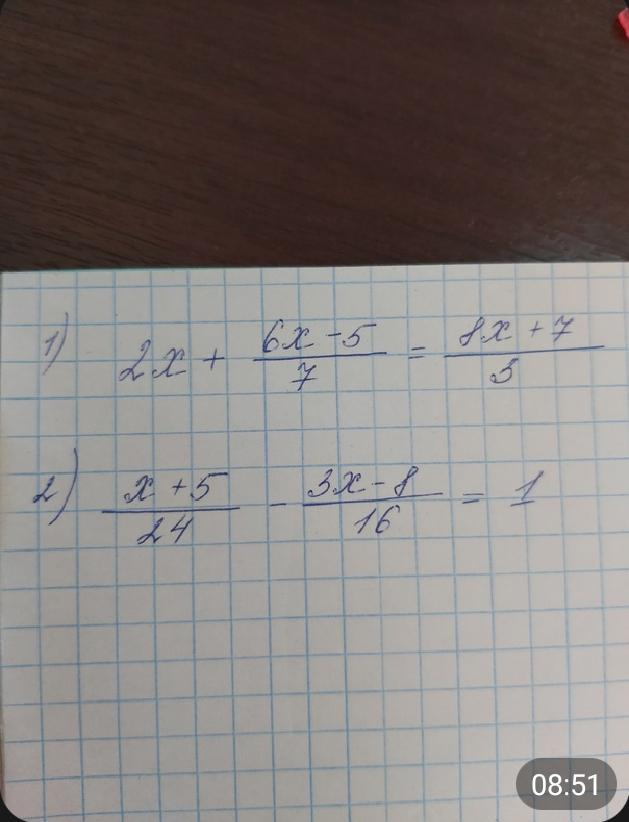 1) 2x + (6x - 5)/7 = (8x + 7)/5
2) (x + 5)/24 - (3x - 8)/16 = 1
08:51